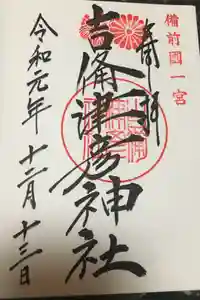 備前國一宮
奉拝
吉備津彦神社
令和元年十二月十三日